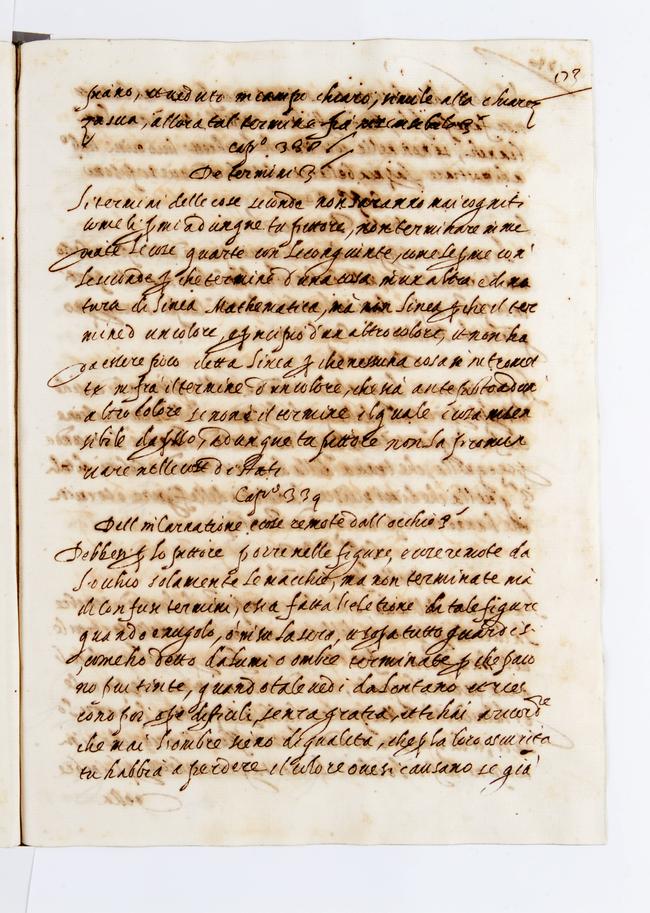 173
piano, et veduto in campo chiaro, simile alla chiarez
za sua, allora tal termine
Cap.º 338
De termini
Li termini delle cose seconde non saranno mai cogniti
come li primi adunque tu pittore, non terminare imme
diate le cose quarte con le conquinte, come le prime con
le seconde che termine d'una cosa in un altra e di na
tura di linea Mathematica, mà non linea che il ter
mine d un colore, è principio d'un altro colore, et non ha
da essere detta linea che nessuna cosa si intromet
te infrà il termine d'un colore, che sia anteposto ad un
altro colore se non è il termine il quale è cosa insen
sibile dapresso, adunque tu pittore non la pronun
ciare nelle cose distanti
Cap.º 339
Dell incarnatione cose remote dall occhio
Debbesi lo pittore porre nelle figure, e cose remote da
l'occhio solamente le macchie, ma non terminate mà
di confusi termini, e sia fatta l'eletione di tale figure
quando è nugolo, ò in su la sera, et sopra tutto guardisi
come ho detto da lumi o ombre terminate che paio
no poi tinte, quando tale vedi da lontano et ries
cono poi difficili, senza gratia, et ti hai a ricord.re
che mai l'ombre sieno di qualità, che la loro oscurità
tu habbia a perdere il colore ove si causano se già